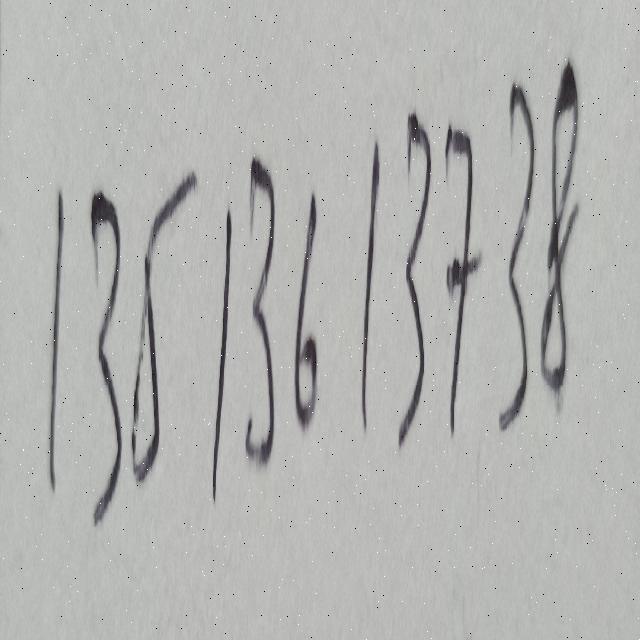 135 136 137 38